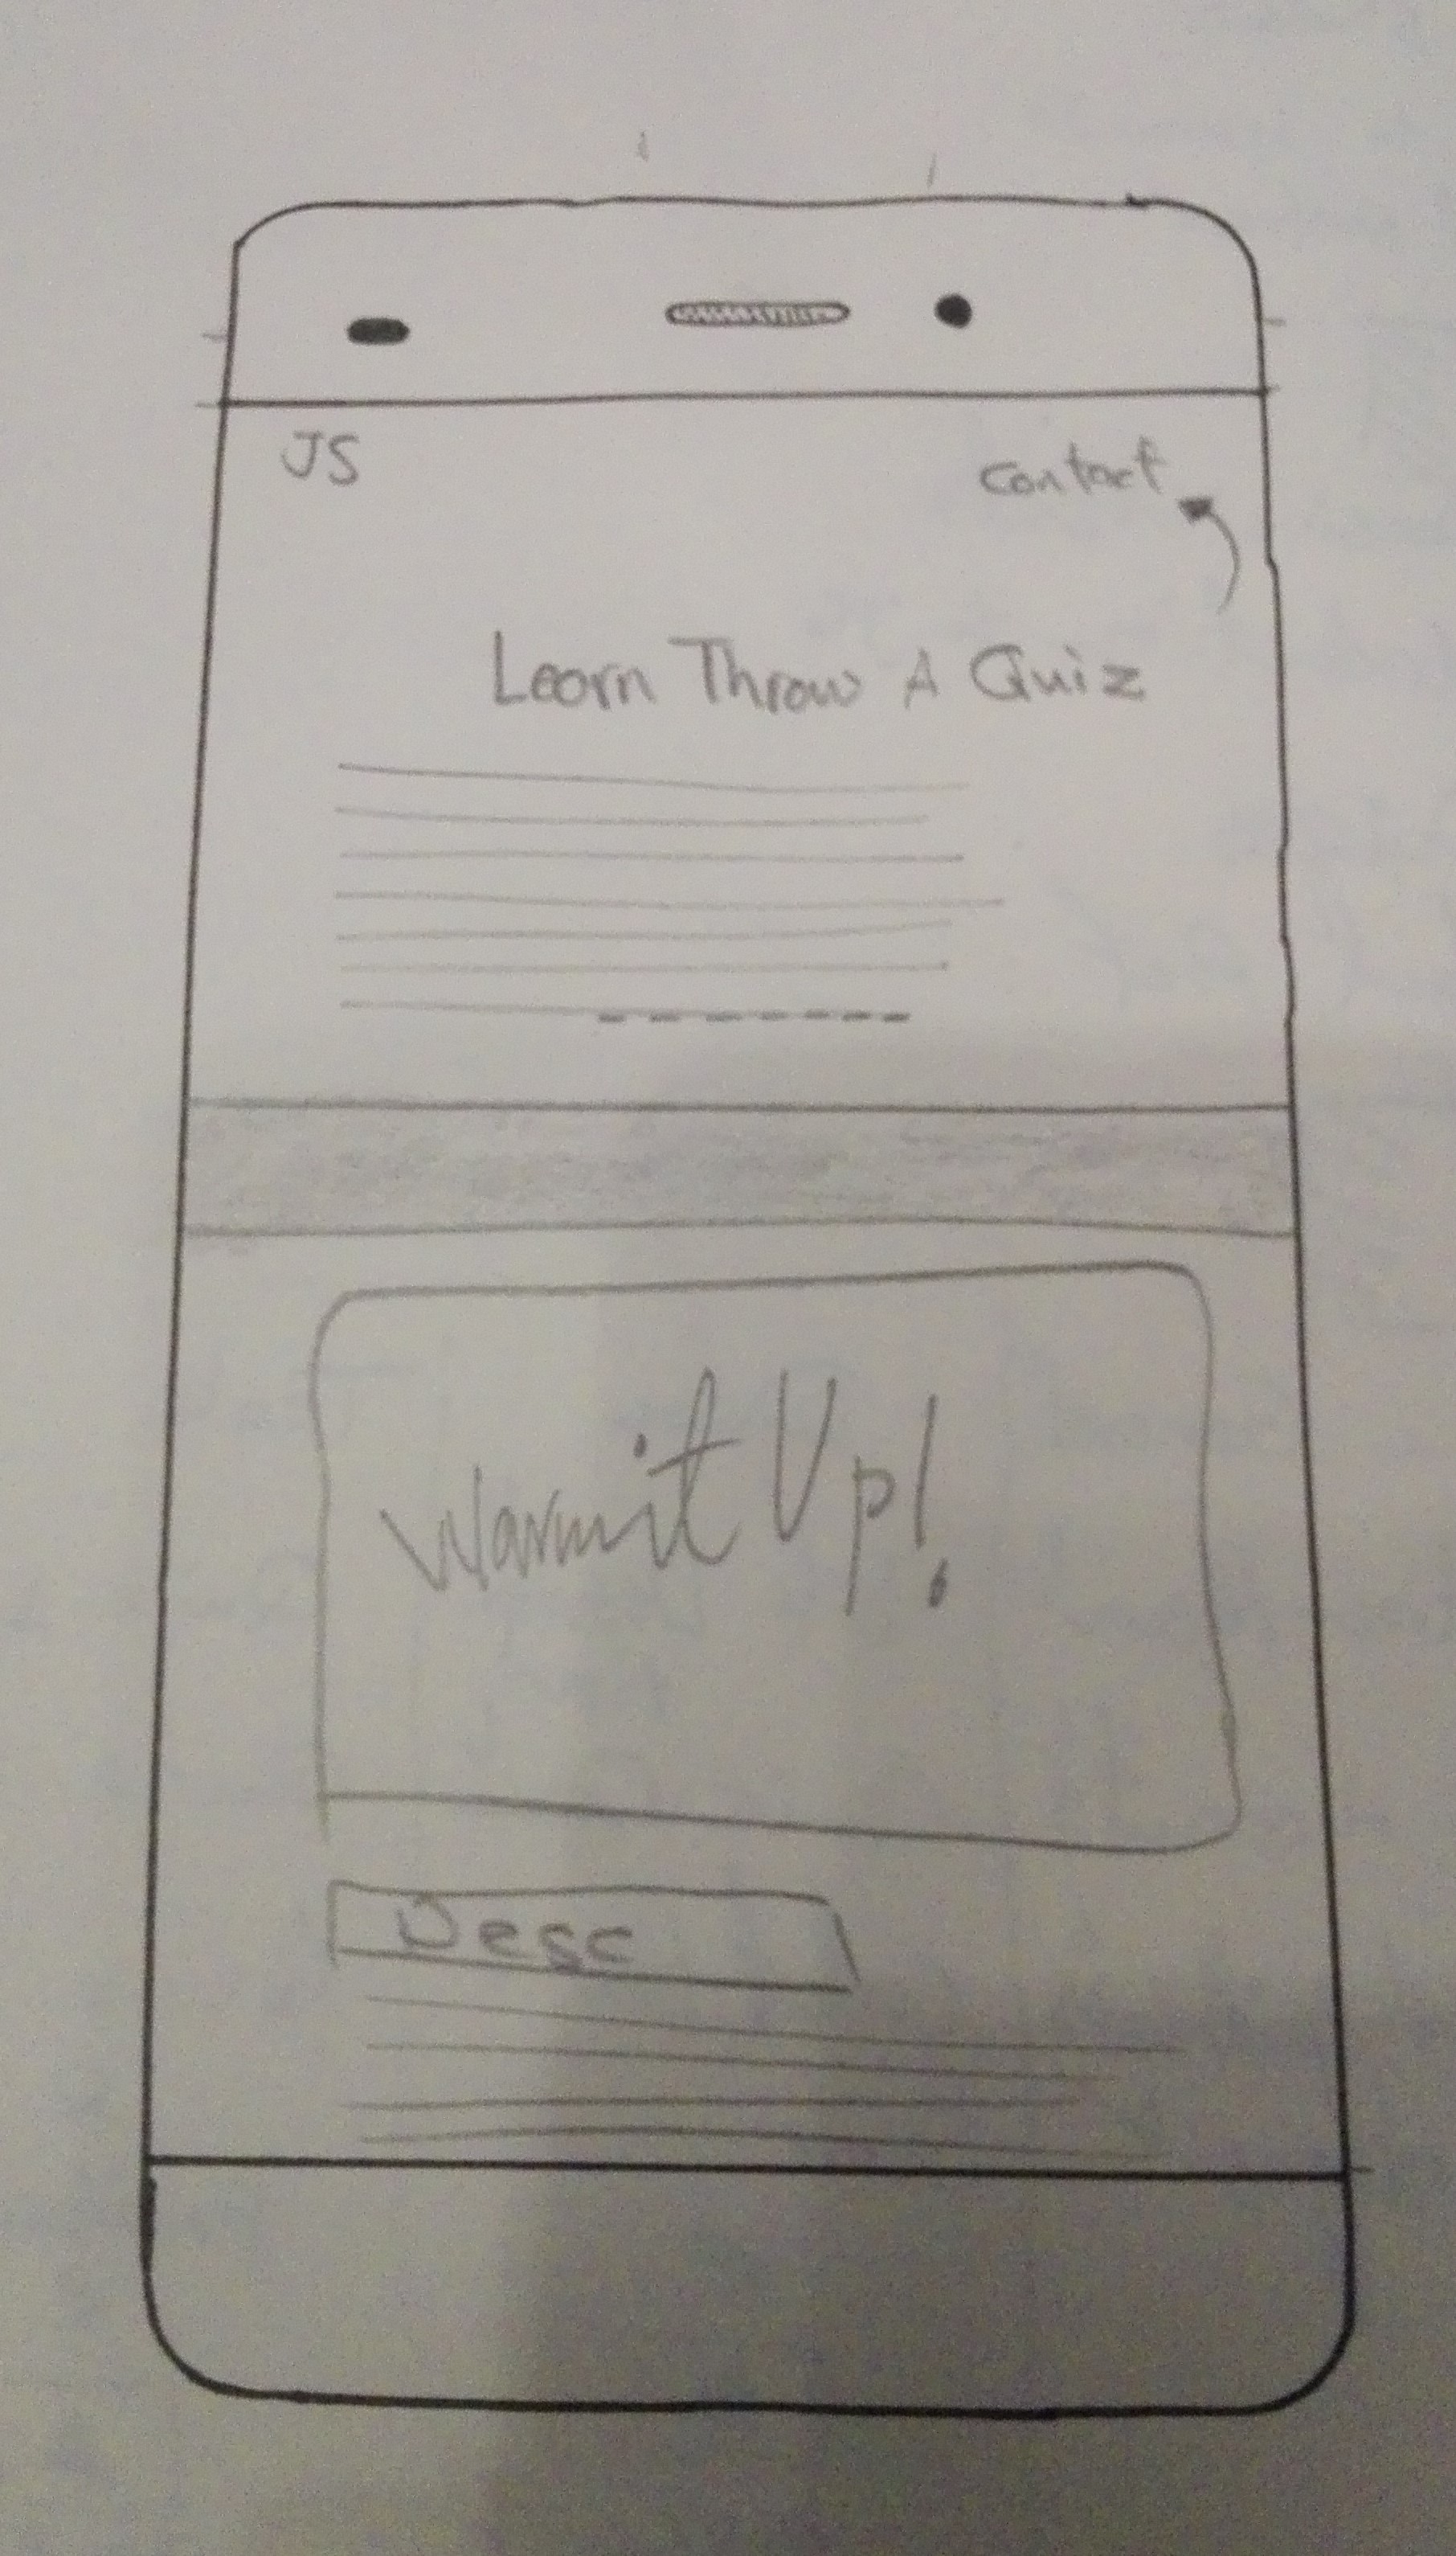 JS
Contact
Learn Throw A Quiz
Warm it Up!
Desc